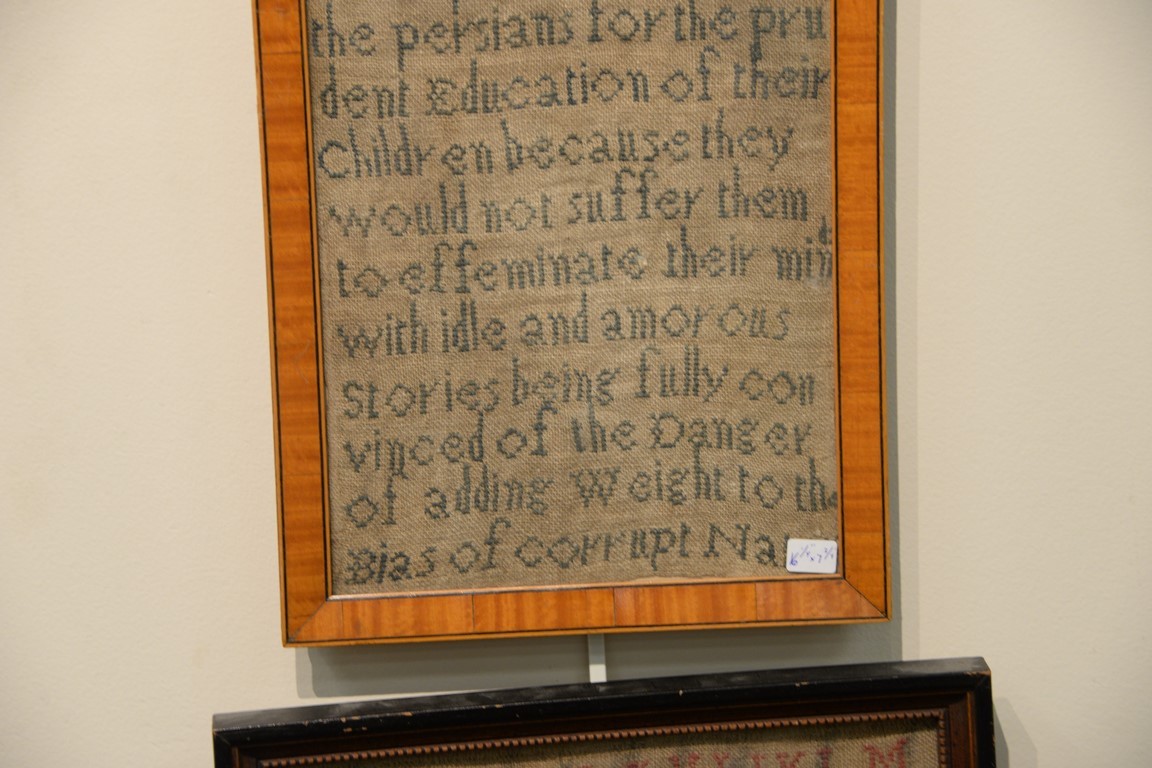 the persians for the pru
dent Education of their
Children because they
would not suffer them
to effeminate their min
with idle and amorous
stories being fully con
vinced of the Danger
of adding Weight to the
Bias of corrupt Na